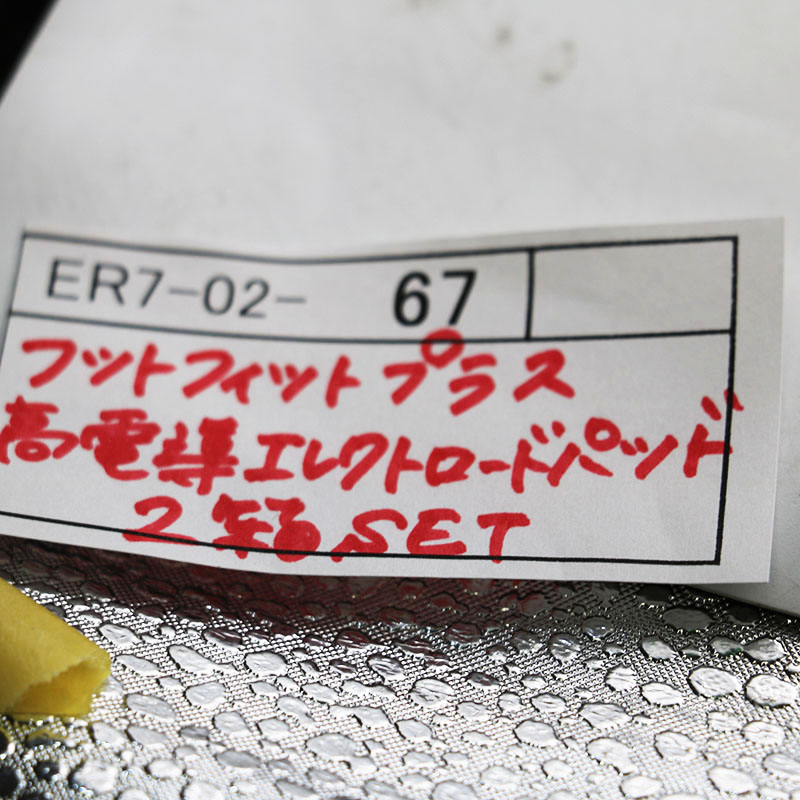 ER7-02- 67
フットフィットプラス
高電導エレクトロードパッド
2箱SET